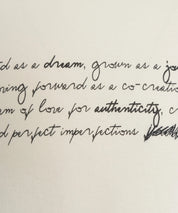 as a dream, grown as a
forward as a co-
of love for authenticity,
perfect imperfections